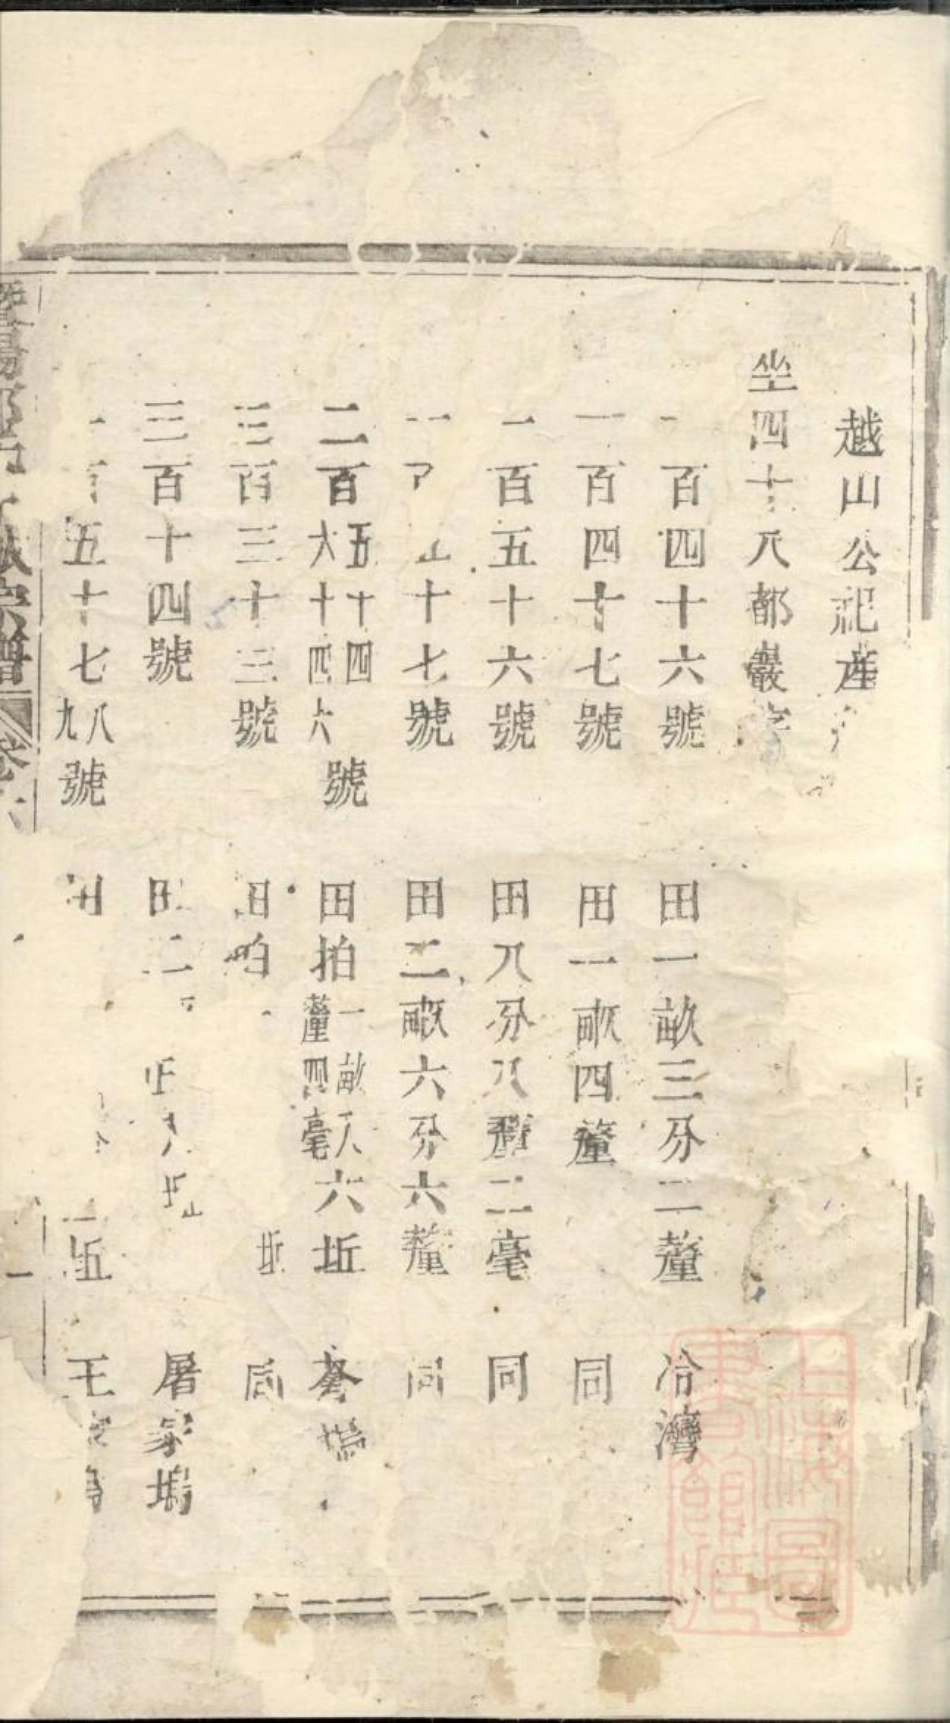 越山公祀產
坐四十八都巖字
一百四十六號 田一畝三分二釐 冷灣
一百四十七號 田一畝四釐 同
一百五十六號 田八分八釐二毫 同
十七號 田二畝六分六釐 同
二百五十四六十四六號 田拍一畝八釐四毫六坵 塢
三百三十三號 田拍 坵 同
三百十四號 田二 坵 屠家塢
百五十七八九號 田 五 王家塢
暨陽 宗譜 卷六 一
上海圖書館藏